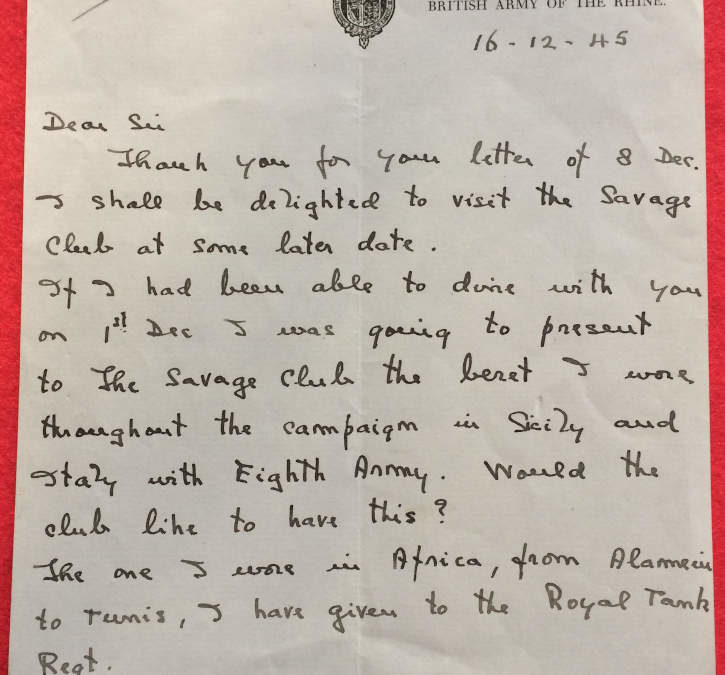 BRITISH ARMY OF THE RHINE.
16-12-45
Dear Sir
Thank you for your letter of 8 Dec.
I shall be delighted to visit the Savage
Club at some later date.
If I had been able to dine with you
on 1st Dec I was going to present
to The Savage Club the beret I wore
throughout the campaign in Sicily and
Italy with Eighth Army. Would the
club like to have this?
The one I wore in Africa, from Alamein
to Tunis, I have given to the Royal Tank
Regt.